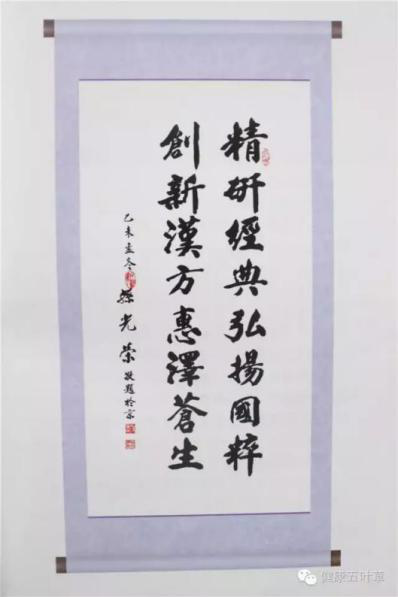 精研經典弘揚國粹
創新漢方惠澤蒼生
乙未孟冬孫光榮敬題於京
健康五叶草